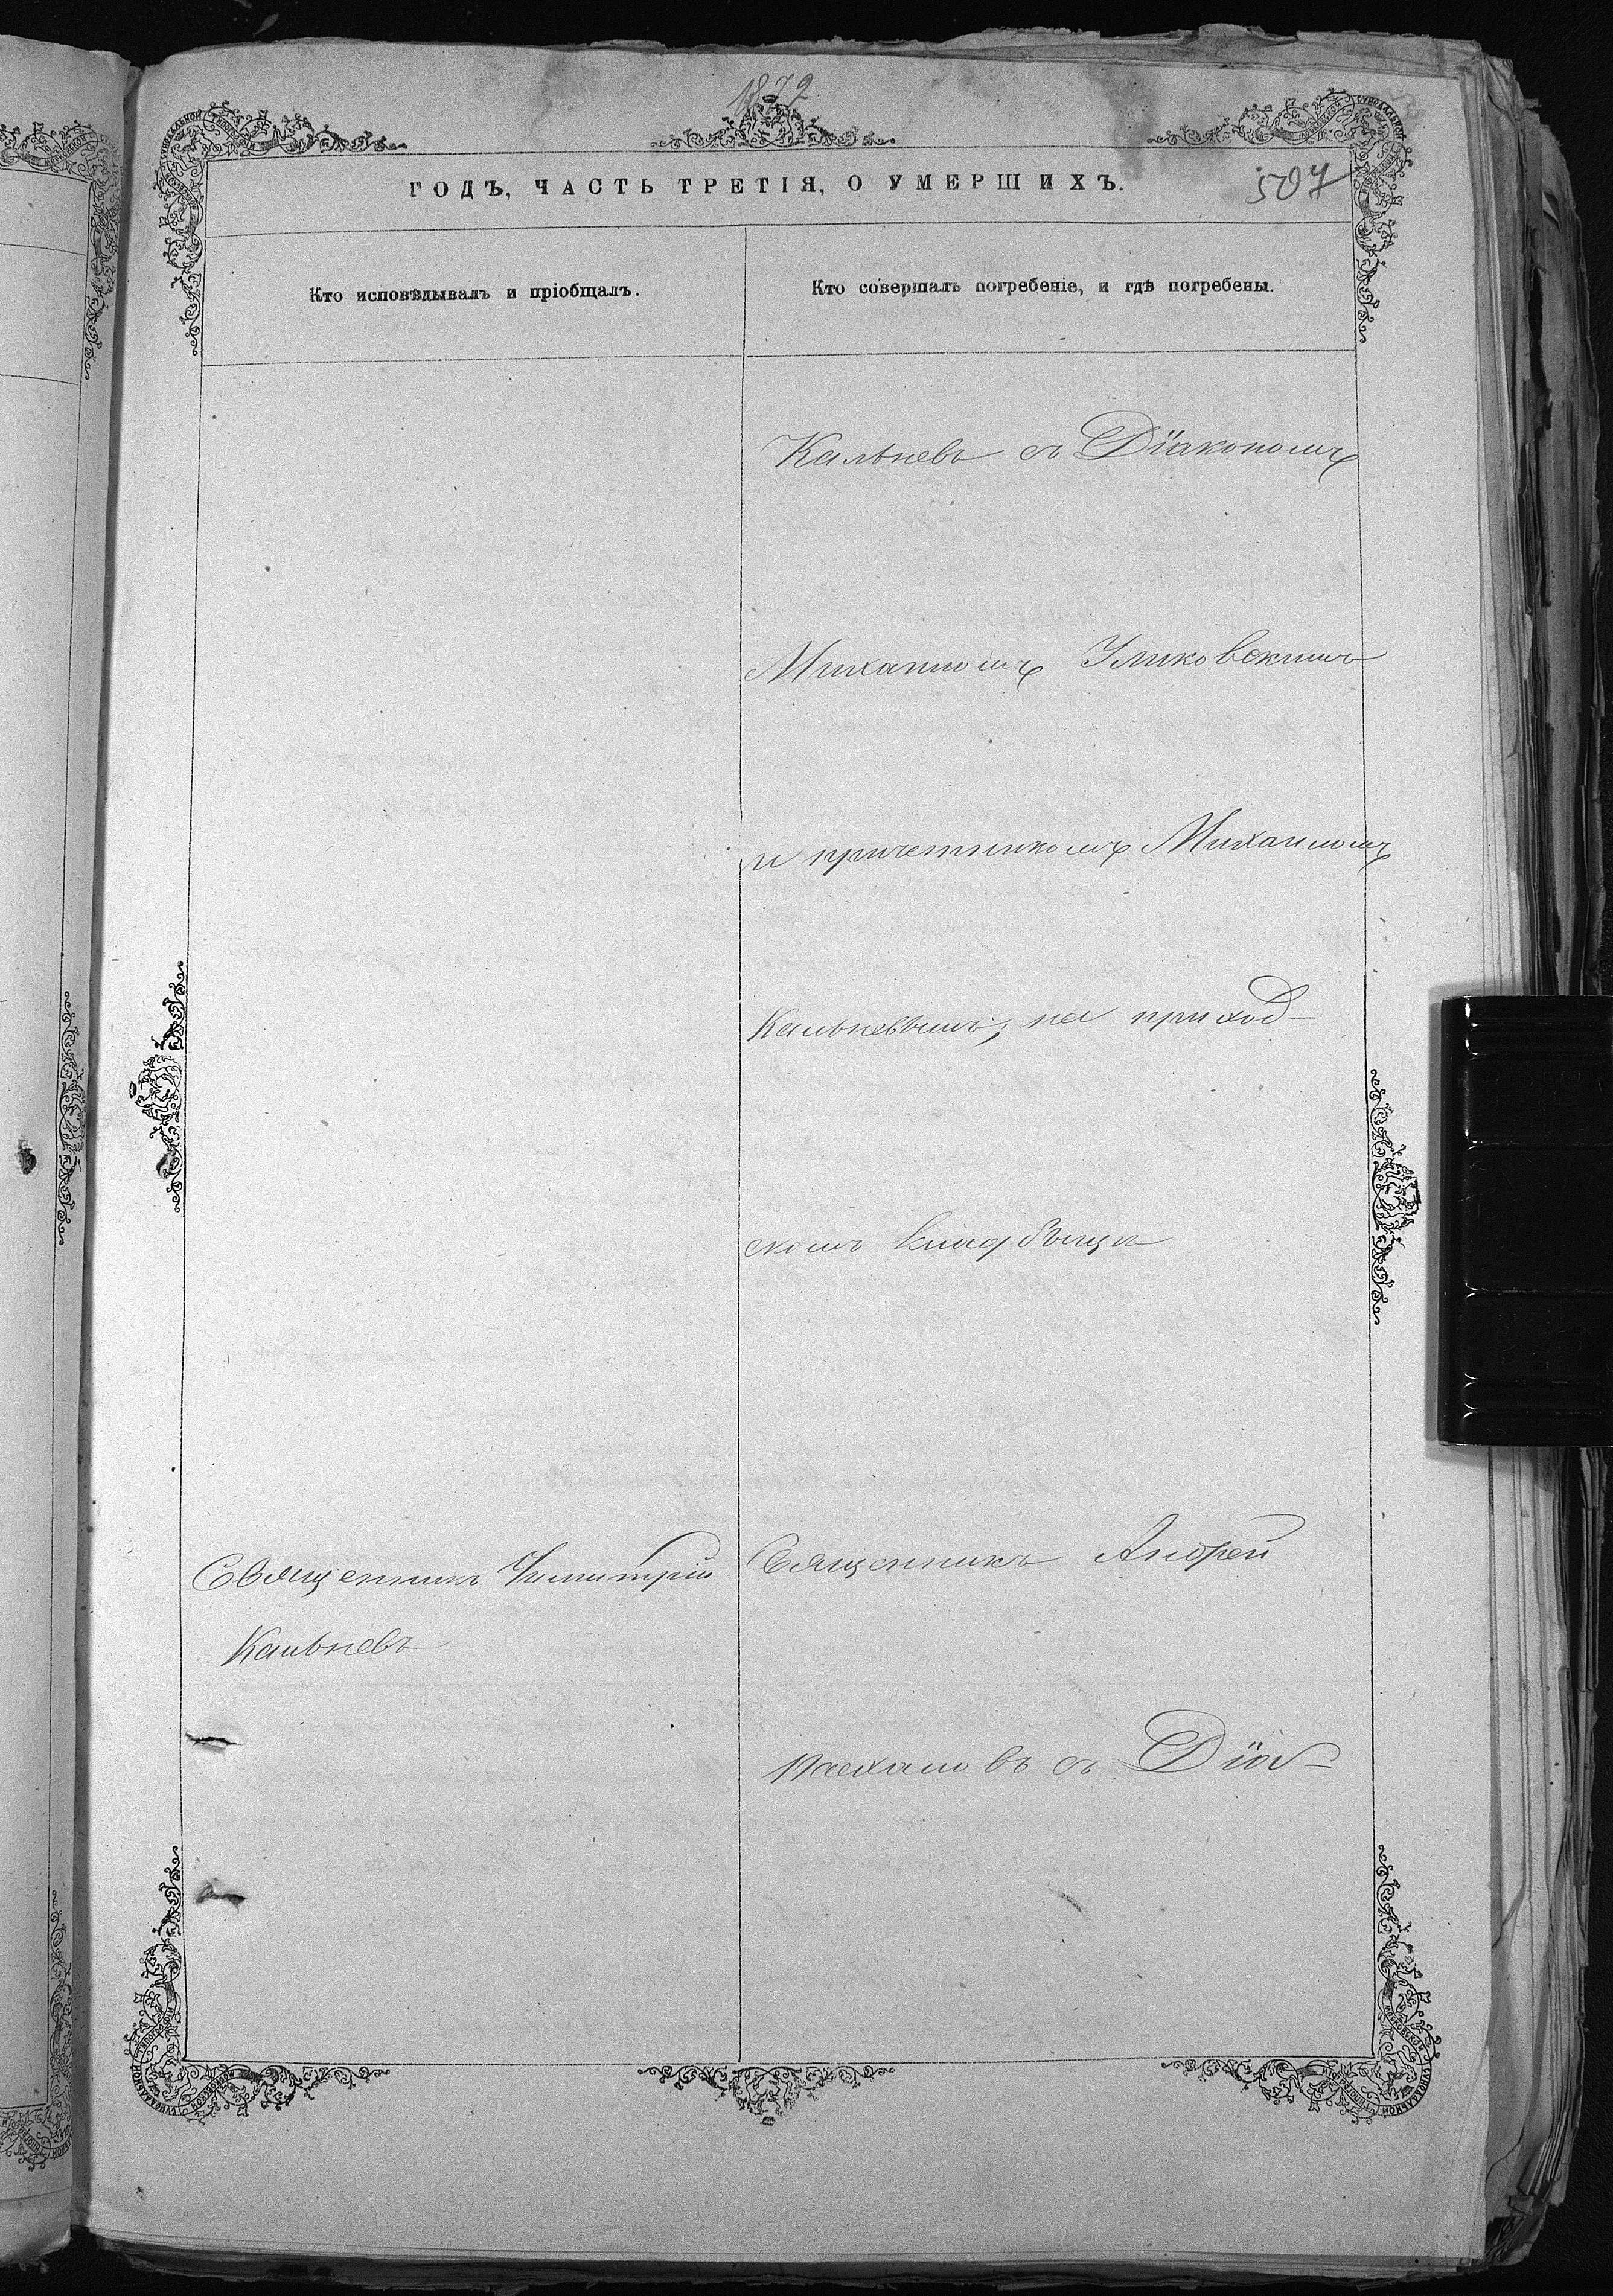 1872
507
ГОДЪ, ЧАСТЬ ТРЕТІЯ, О УМЕРШИХЪ.
Кто исповѣдывалъ и пріобщалъ.
Кто совершалъ погребеніе, и гдѣ погребены.
Кальневъ съ Діакономъ
Михаиломъ
и причетникомъ Михаиломъ
Кальневымъ, на приход-
скомъ кладбищѣ
Священникъ Димитрій
Кальневъ
Священникъ Андрей
съ Діа-